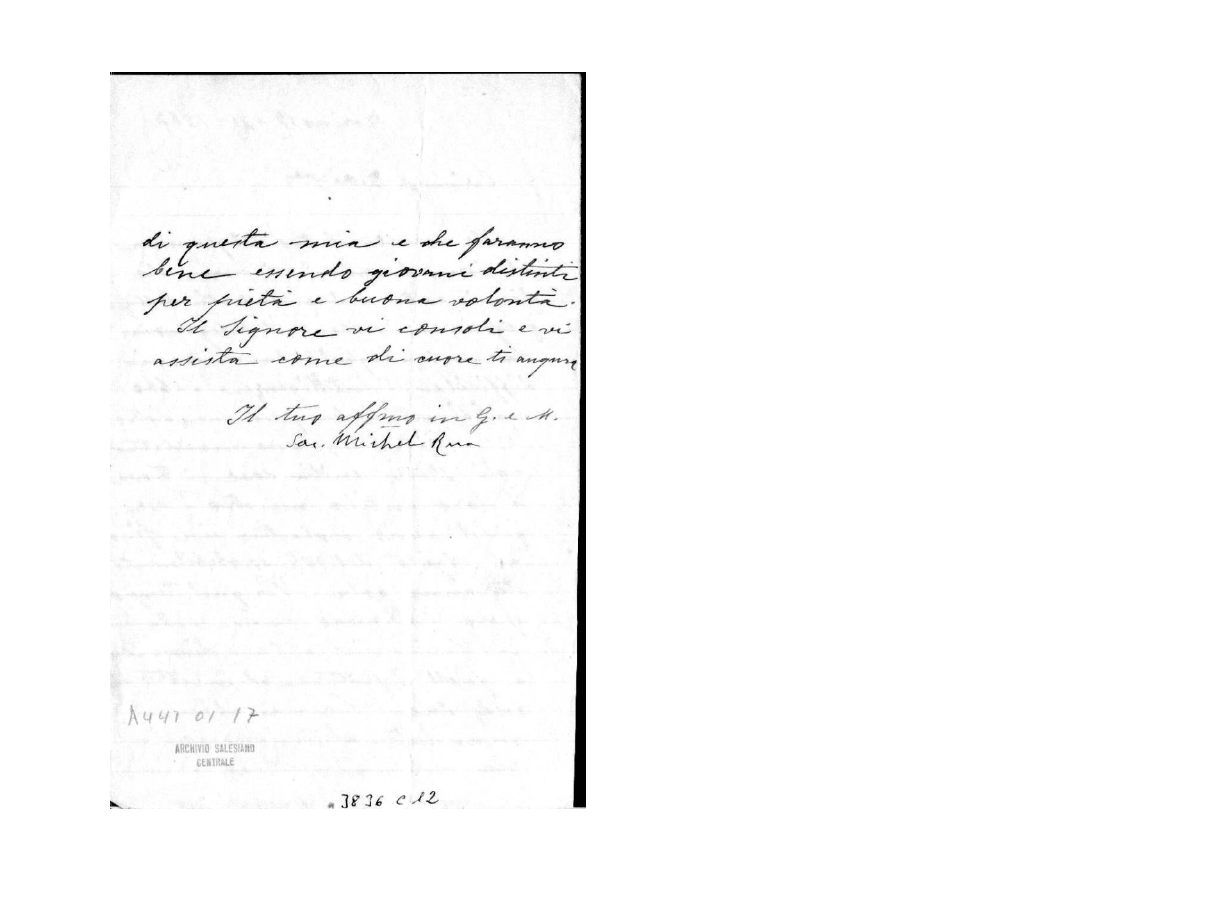 di questa mia e che faranno
bene essendo giovani distinti
per pietà e buona volontà.
Il Signore vi consoli e vi
assista come di cuore ti augura
Il tuo affmo in G. e M.
Sac. Michel Rua
A447 01 17
ARCHIVIO SALESIANO
CENTRALE
3836 C 12